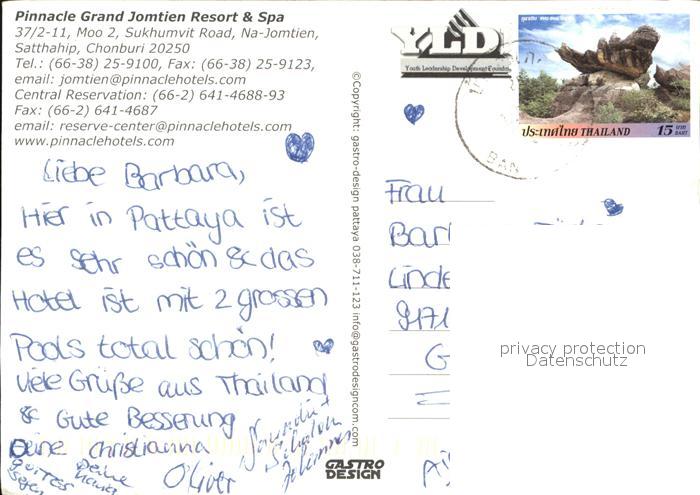 Pinnacle Grand Jomtien Resort & Spa
37/2-11, Moo 2, Sukhumvit Road, Na-Jomtien,
Satthahip, Chonburi 20250
Tel.: (66-38) 25-9100, Fax: (66-38) 25-9123,
email: jomtien@pinnaclehotels.com
Central Reservation: (66-2) 641-4688-93
Fax: (66-2) 641-4687
email: reserve-center@pinnaclehotels.com
www.pinnaclehotels.com
Liebe Barbara,
Hier in Pattaya ist
es sehr schön & das
Hotel ist mit 2 grossen
Pools total schön!
Viele Grüße aus Thailand
& Gute Besserung
Deine Christianna
Deine
Oliver
©Copyright: gastro-design pattaya 038-711-123 info@gastrodesigncom.com
GASTRO
DESIGN
YLD
Youth Leadership Development Foundat
ประเทศไทย THAILAND 15 บาท
BAHT
BAN
Frau
Bar
Linde
9171
G
privacy protection
Datenschutz